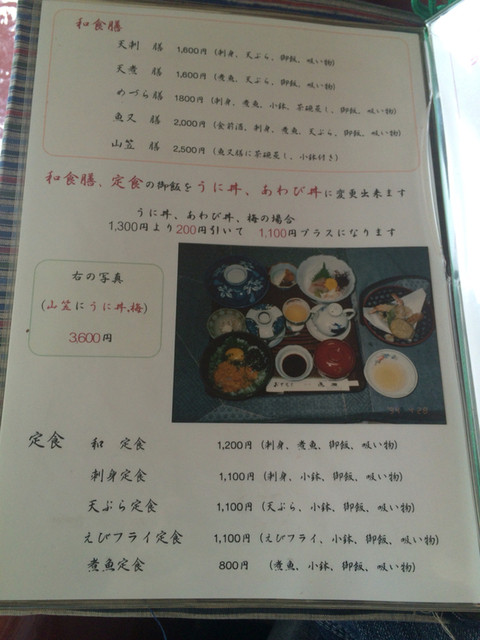 和食膳
天刺 膳 1,600円 (刺身、天ぷら、御飯、吸い物)
天煮 膳 1,600円 (煮魚、天ぷら、御飯、吸い物)
めづら膳 1800円 (刺身、煮魚、小鉢、茶碗蒸し、御飯、吸い物)
魚又 膳 2,000円 (食前酒、刺身、煮魚、天ぷら、御飯、吸い物)
山笠 膳 2,500円 (魚又膳に茶碗蒸し、小鉢付き)
和食膳、定食の御飯をうに丼、あわび丼に変更出来ます
うに丼、あわび丼、梅の場合
1,300円より200円引いて 1,100円プラスになります
右の写真
(山笠にうに丼,梅)
3,600円
定食 和 定食 1,200円 (刺身、煮魚、御飯、吸い物)
刺身定食 1,100円 (刺身、小鉢、御飯、吸い物)
天ぷら定食 1,100円 (天ぷら、小鉢、御飯、吸い物)
えびフライ定食 1,100円 (えびフライ、小鉢、御飯、吸い物)
煮魚定食 800円 (煮魚、小鉢、御飯、吸い物)